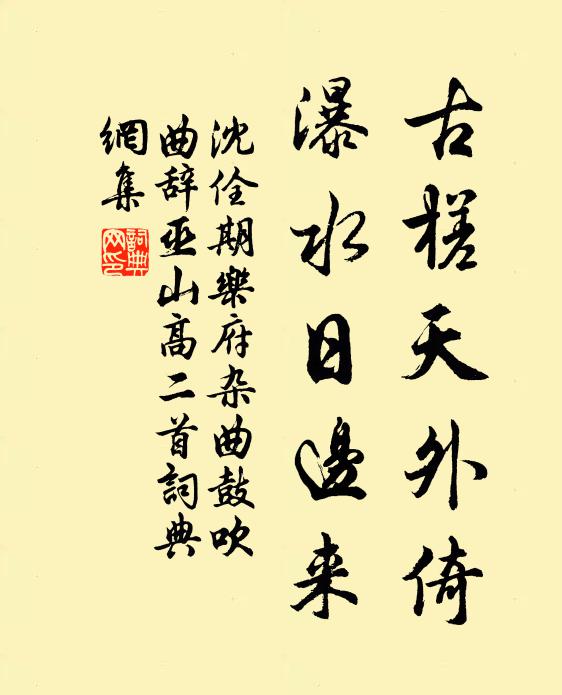 古槎天外倚
瀑水日邊来
沈佺期樂府杂曲鼓吹
曲辞巫山高二首詞典
網集
詞典网印